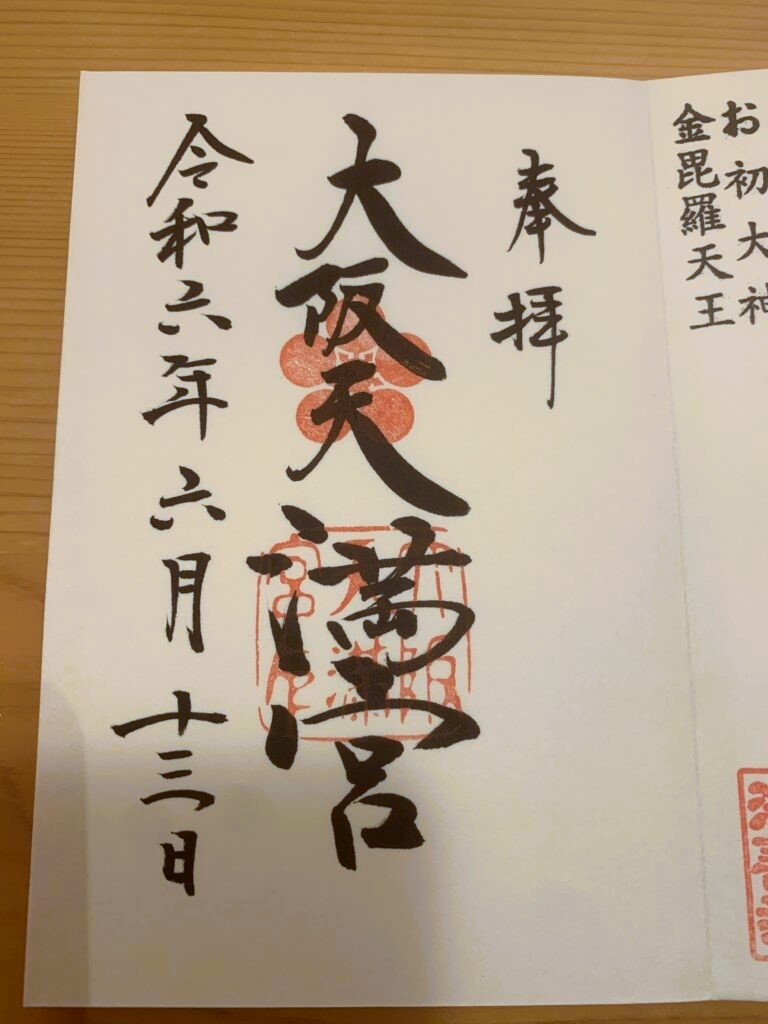 お初大神
金毘羅天王
奉拝
大阪天満宮
令和六年六月十三日